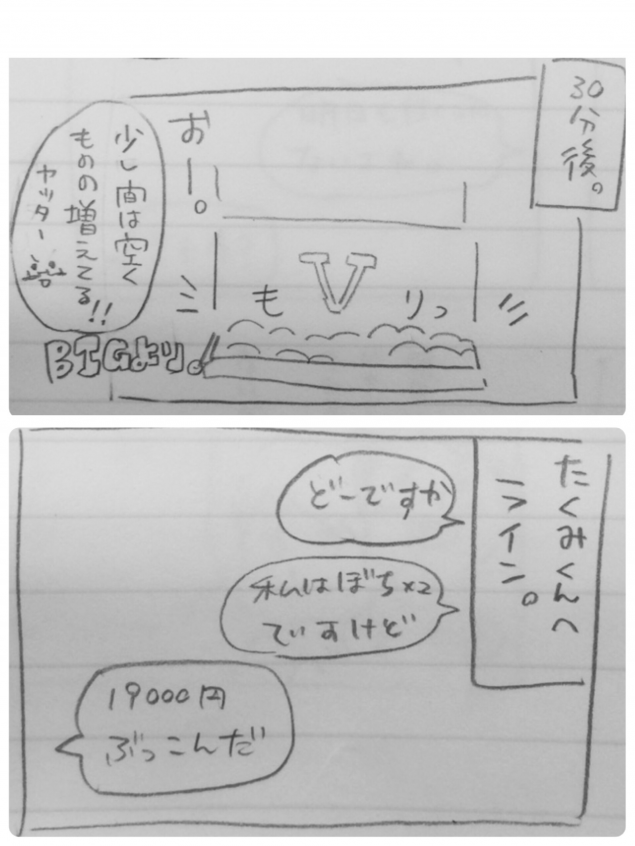 30分後。
おー。
V
もりっ
少し間は空く
ものの増えてる!!
ヤッター
BIGより。
たくみくんへ
ライン。
どーですか
私はぼち×2
でぃすけど
19000円
ぶっこんだ